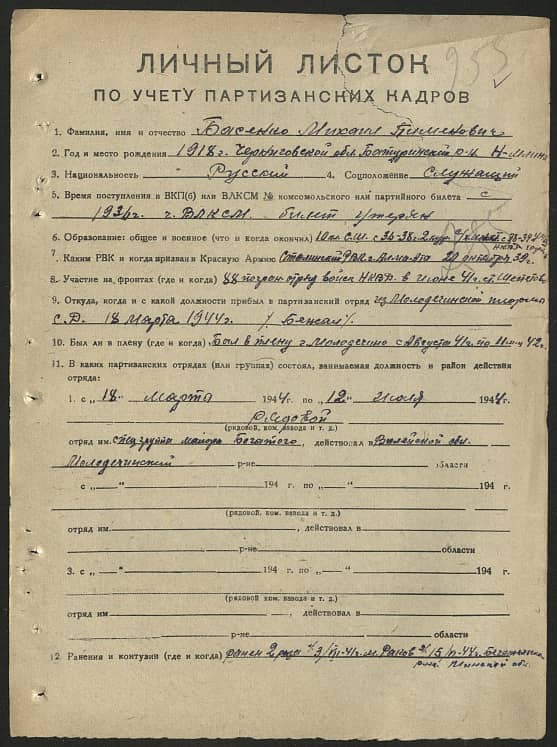 955
ЛИЧНЫЙ ЛИСТОК
ПО УЧЕТУ ПАРТИЗАНСКИХ КАДРОВ
1. Фамилия, имя и отчество Басенко Михаил Пименович
2. Год и место рождения 1918 г. Черниговской обл. Батуринский р-н
3. Национальность Русский 4. Соцположение Служащий
5. Время поступления в ВКП(б) или ВЛКСМ № комсомольского или партийного билета с
1936 г. ч. ВЛКСМ билет утерян
6. Образование: общее и военное (что и когда окончил)
7. Каким РВК и когда призван в Красную Армию Сталинский РВК г. Алма-Ата 20 октября 39.
8. Участие на фронтах (где и когда) 88 погран отряд войск НКВД. в июне 41 г.
9. Откуда, когда и с какой должности прибыл в партизанский отряд из Молодечинской
18 Марта 1944 г. / Бежал /.
10. Был ли в плену (где и когда) Был в плену г. Молодечино с Августа 41 г. по 42 г.
11. В каких партизанских отрядах (или группах) состоял, занимаемая должность и район действия
отряда:
1. с „18“ Марта 1944 г. по „12“ июля 1944 г.
Рядовой
(рядовой, ком. взвода и т. д.)
отряд им. Спецгруппа майора Богатого, действовал в Вилейской обл.
Молодечинский р-не области
с „ “ 194 г. по „ “ 194 г.
(рядовой, ком. взвода и т. д.)
отряд им , действовал в
р-не области
3. с „ “ 194 г. по „ “ 194 г.
(рядовой, ком. взвода и т. д.)
отряд им , действовал в
р-не области
12. Ранения и контузии (где и когда) ранен 2 раза 41 г. м. Раков 44 г.
Минской обл.